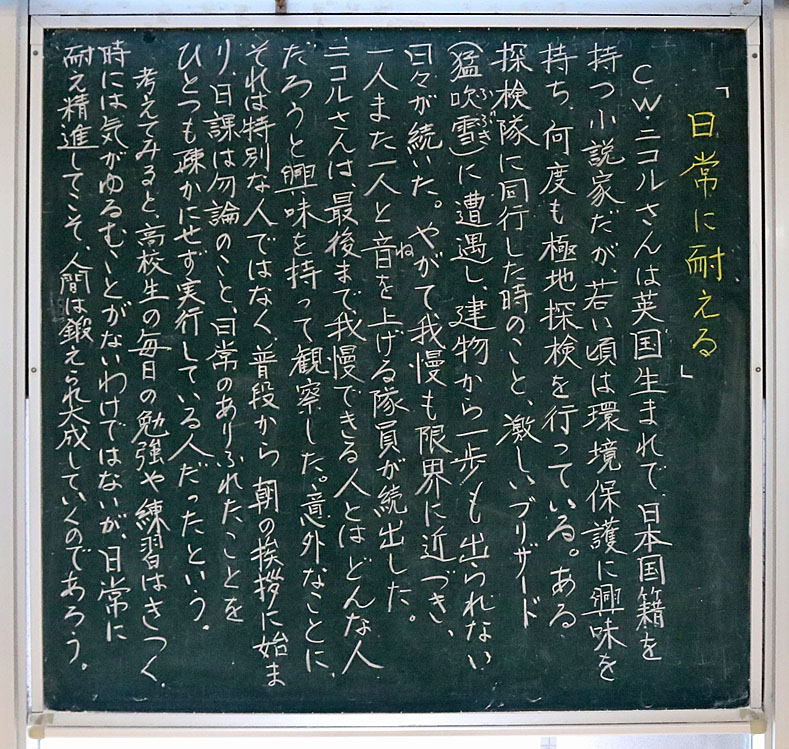 「日常に耐える」
C.W.ニコルさんは英国生まれで、日本国籍を
持つ小説家だが、若い頃は環境保護に興味を
持ち、何度も極地探検を行っている。ある
探検隊に同行した時のこと、激しいブリザード
(猛吹雪ふぶき)に遭遇し、建物から一歩も出られない
日々が続いた。やがて、我慢も限界に近づき、
一人また一人と音ねを上げる隊員が続出した。
ニコルさんは、最後まで我慢できる人とはどんな人
だろうと興味を持って観察した。意外なことに、
それは特別な人ではなく、普段から朝の挨拶に始ま
り、日課は勿論のこと、日常のありふれたことを
ひとつも疎かにせず実行している人だったという。
考えてみると、高校生の毎日の勉強や練習はきつく、
時には気がゆるむことがないわけではないが、日常に
耐え精進してこそ、人間は鍛えられ大成していくのであろう。